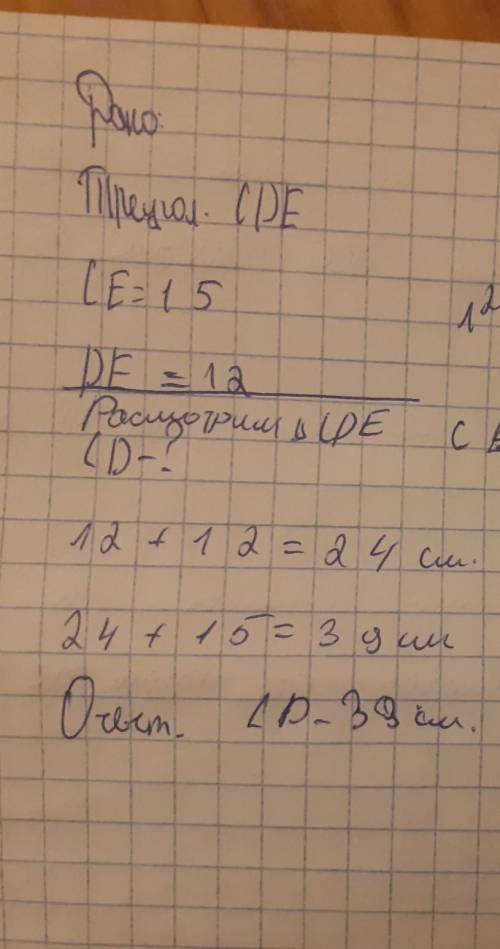 Дано:
Треугол. CDE
CE = 15
DE = 12
Рассмотрим △ CDE
CD - ?
12 + 12 = 24 см.
24 + 15 = 39 см
Ответ. CD - 39 см.
1²
C